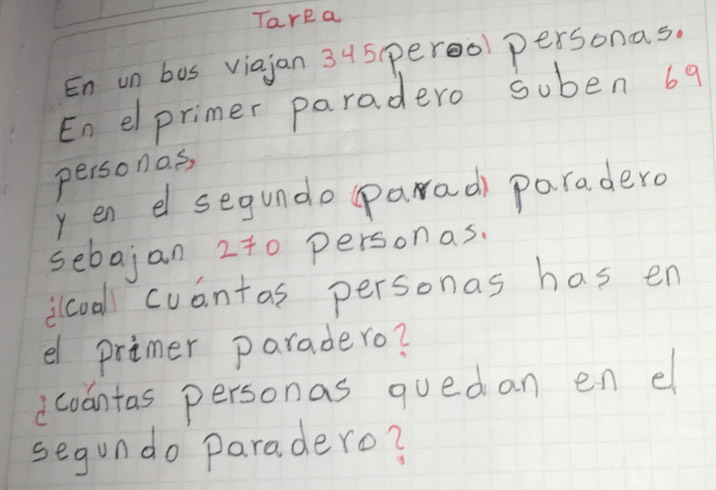 Tarea
En un bus viajan 345 (perool) personas.
En el primer paradero suben 69
personas,
y en el segundo (parad) paradero
sebajan 270 personas.
¿(cual) cuántas personas has en
el primer paradero?
¿cuántas personas quedan en el
segundo paradero?